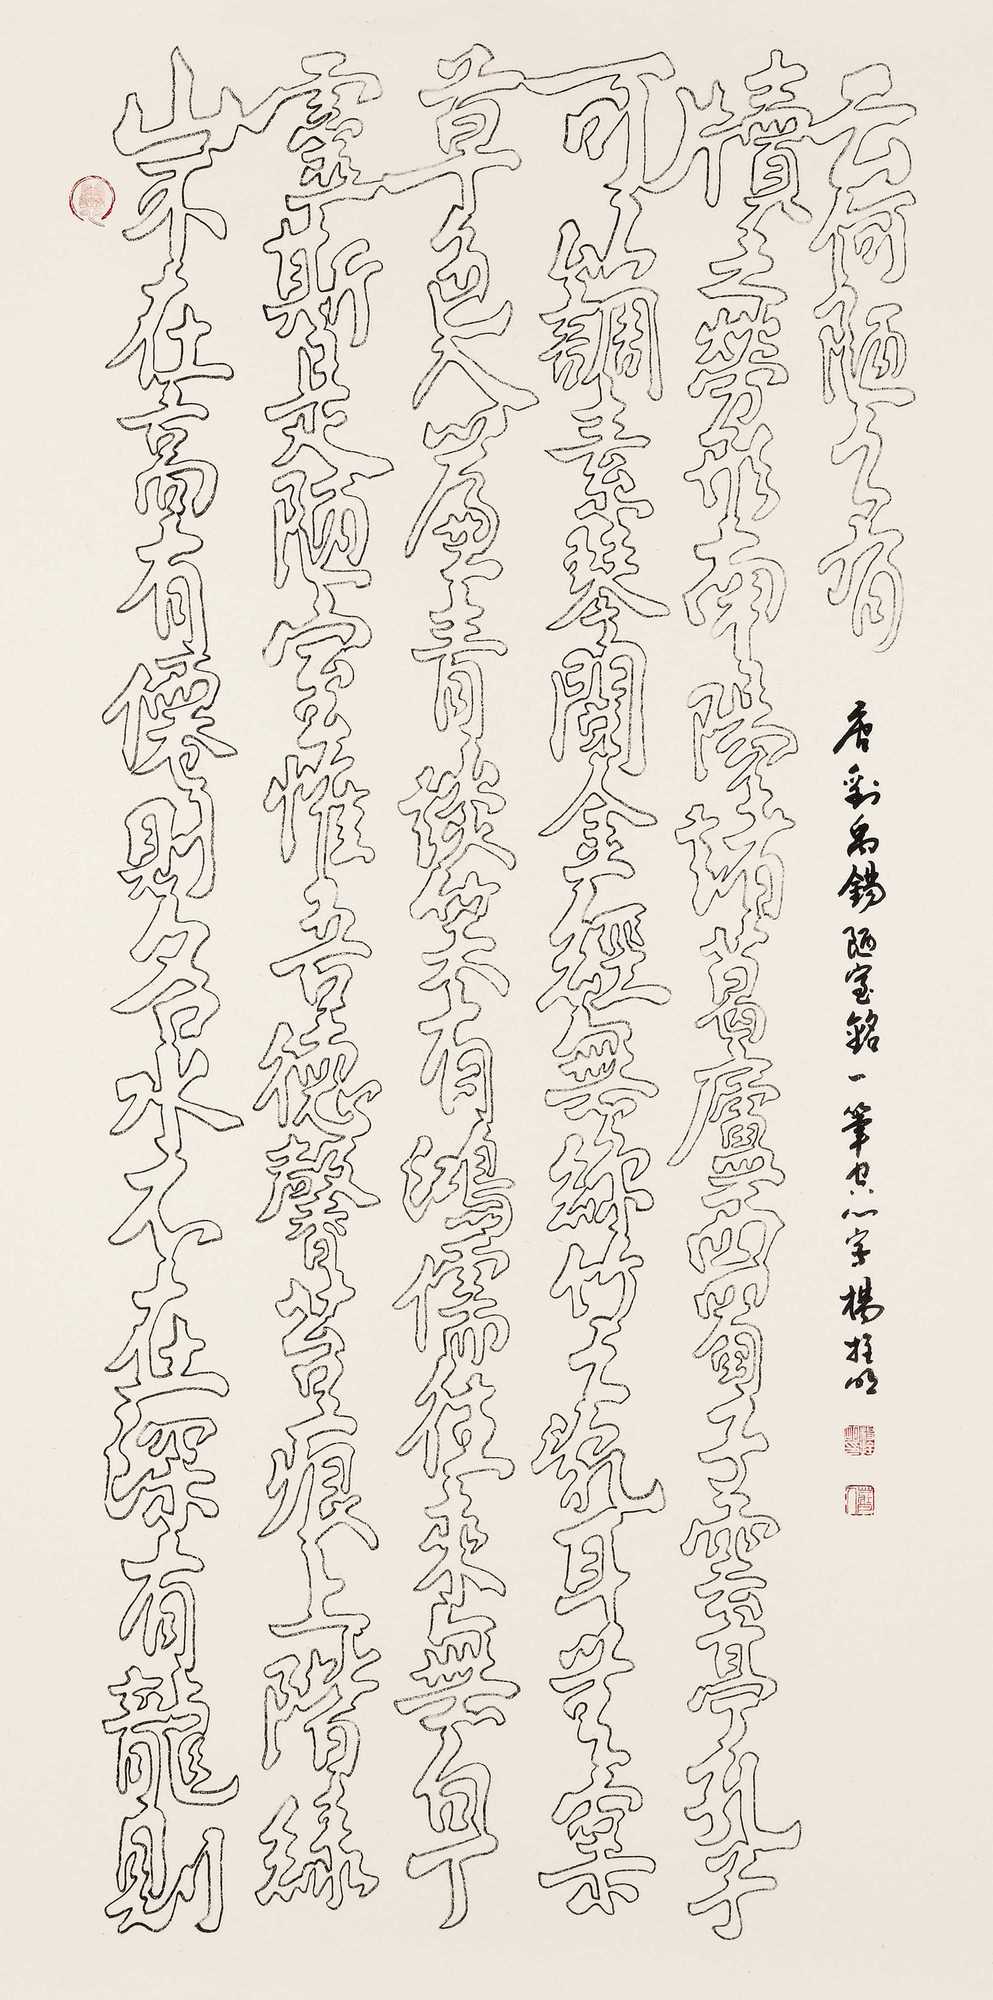 山不在高有僊則名水不在深有龍則
靈斯是陋室惟吾德馨苔痕上階綠
草色入簾青談笑有鴻儒往來無白丁
可以調素琴閱金經無絲竹之亂耳無案
牘之勞形南陽諸葛廬西蜀子雲亭孔子
云何陋之有
唐劉禹錫陋室銘一筆空心字楊明